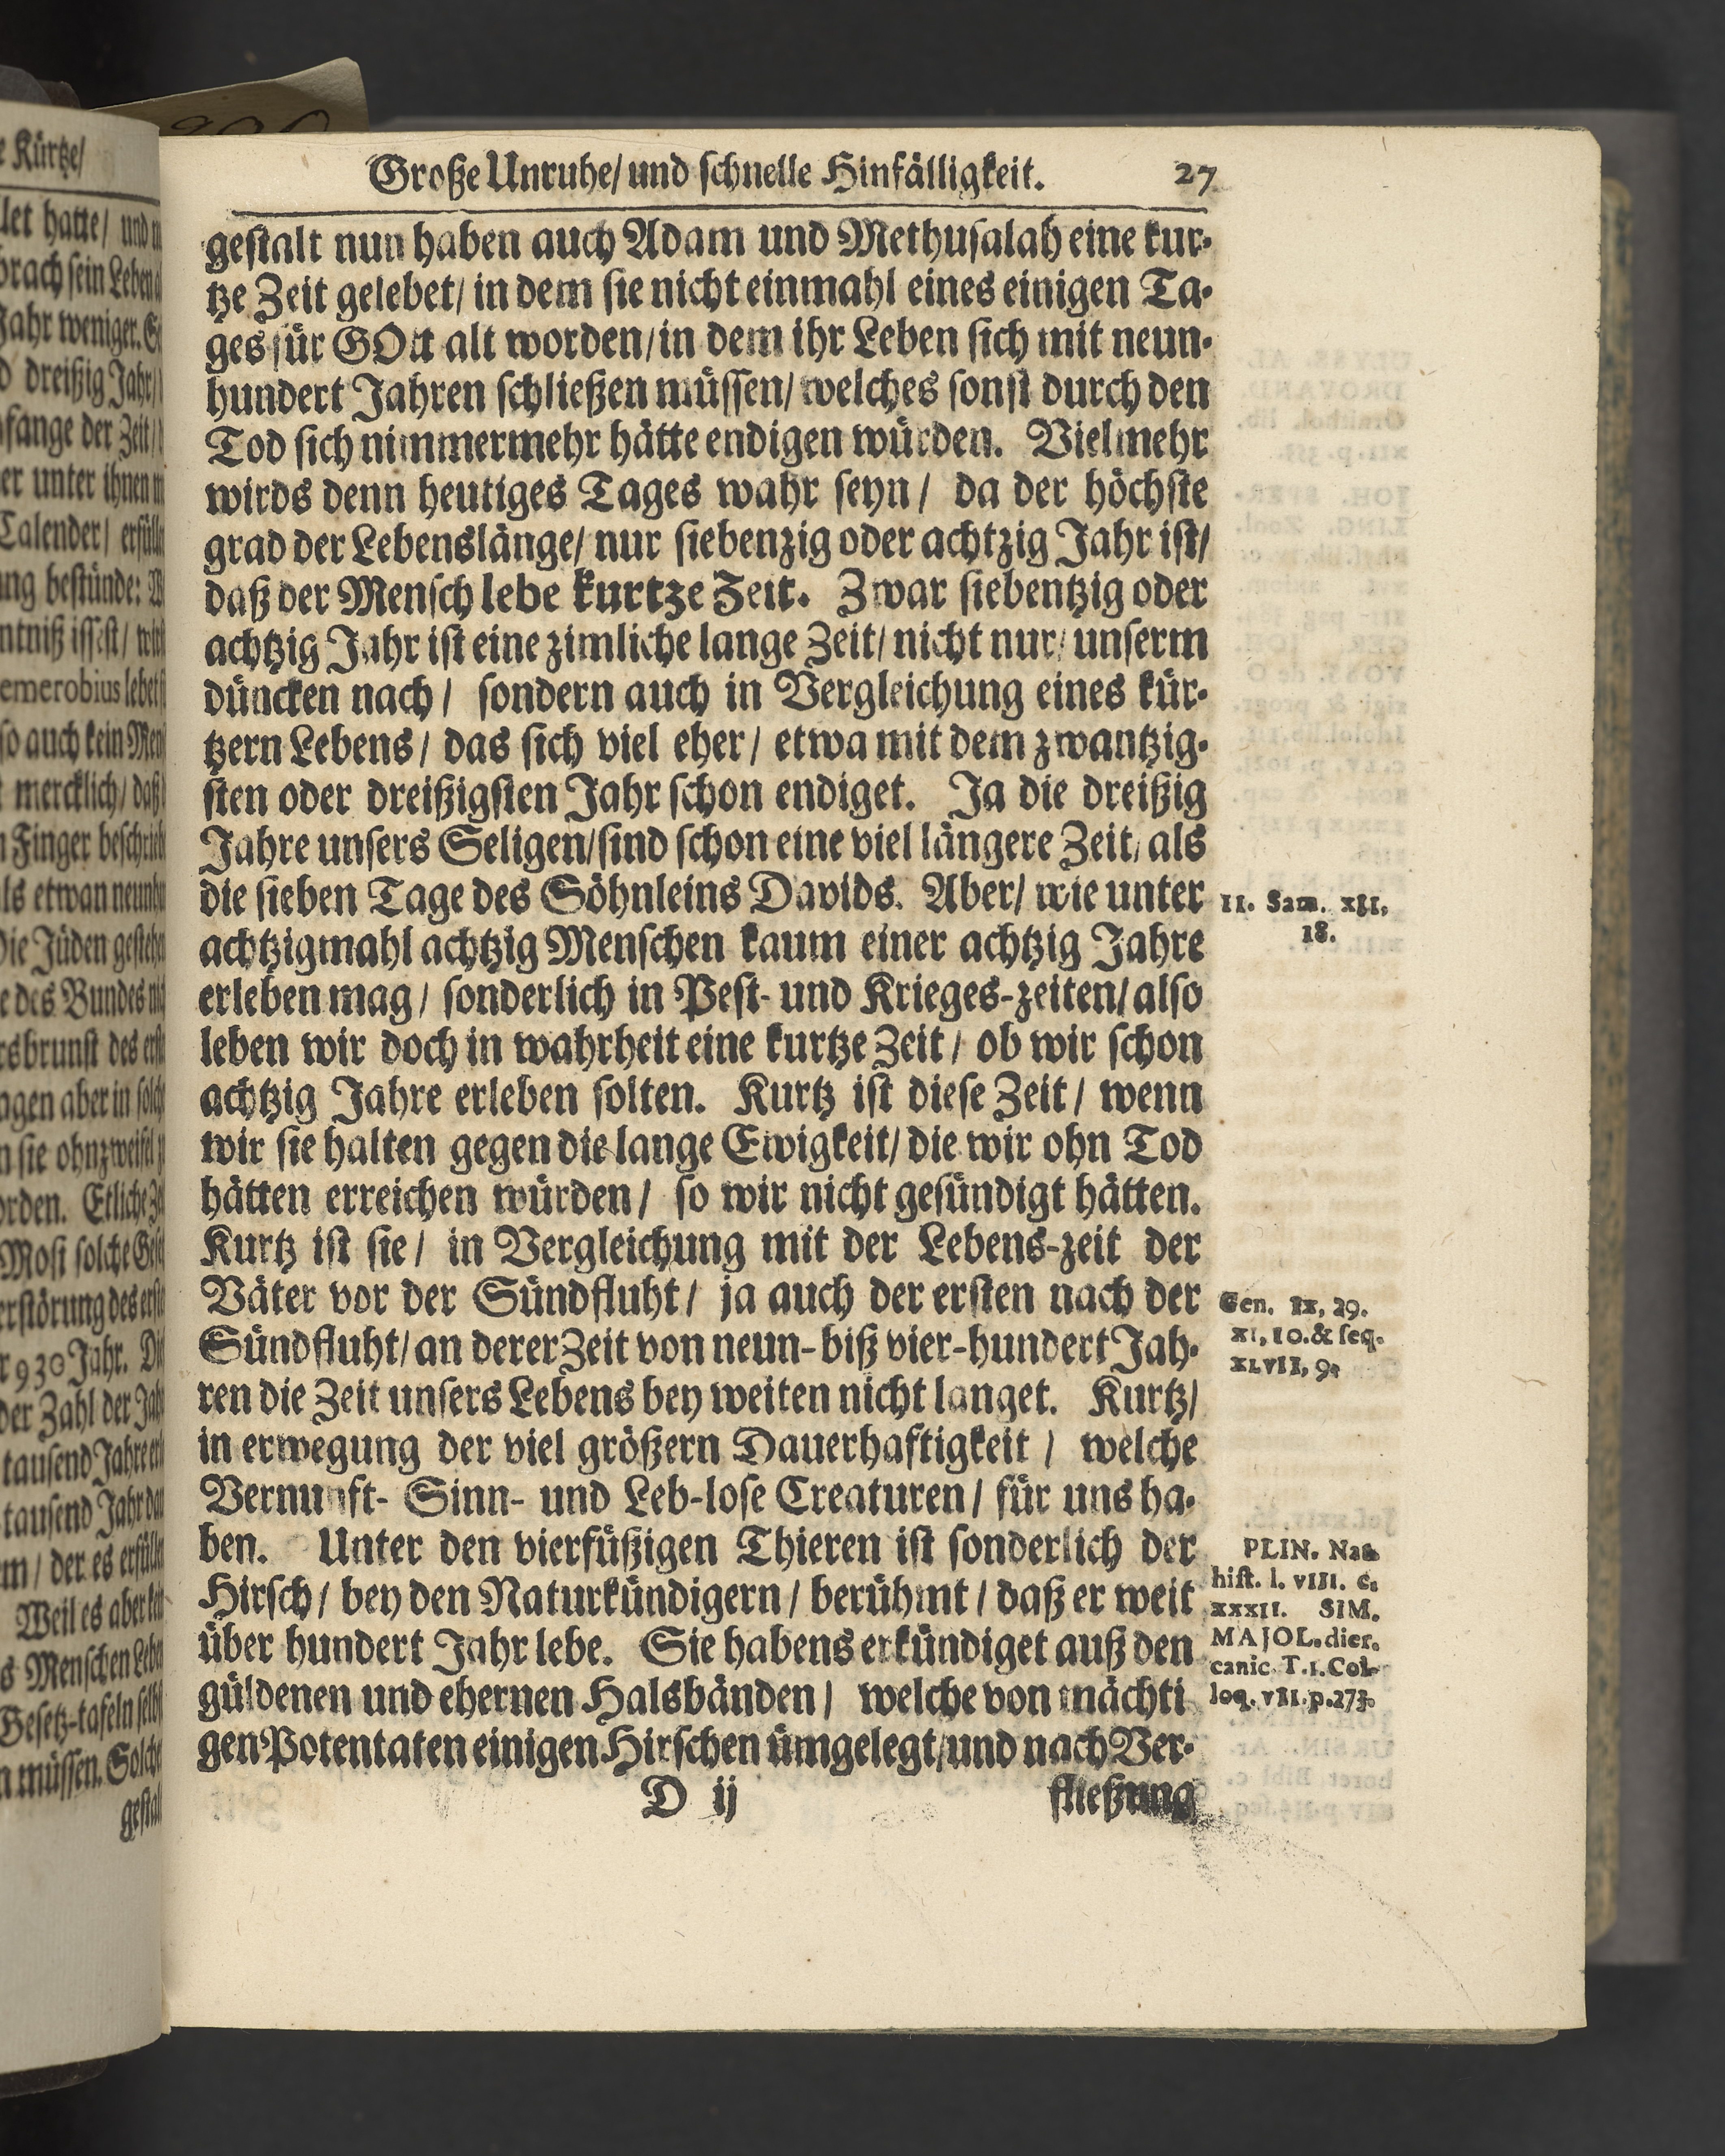 Große Unruhe/ und schnelle Hinfälligkeit. 27
gestalt nun haben auch Adam und Methusalah eine kur-
tze Zeit gelebet/ in dem sie nicht einmahl eines einigen Ta-
ges für GOtt alt worden/ in dem ihr Leben sich mit neun-
hundert Jahren schließen müssen/ welches sonst durch den
Tod sich nimmermehr hätte endigen würden. Vielmehr
wirds denn heutiges Tages wahr seyn/ da der höchste
grad der Lebenslänge/ nur siebenzig oder achtzig Jahr ist/
daß der Mensch lebe kurtze Zeit. Zwar siebentzig oder
achtzig Jahr ist eine zimliche lange Zeit/ nicht nur/ unserm
düncken nach/ sondern auch in Vergleichung eines kür-
tzern Lebens/ das sich viel eher/ etwa mit dem zwantzig-
sten oder dreißigsten Jahr schon endiget. Ja die dreißig
Jahre unsers Seligen/ sind schon eine viel längere Zeit/ als
die sieben Tage des Söhnleins Davids. Aber/ wie unter
achtzigmahl achtzig Menschen kaum einer achtzig Jahre
erleben mag/ sonderlich in Pest- und Krieges-zeiten/ also
leben wir doch in wahrheit eine kurtze Zeit/ ob wir schon
achtzig Jahre erleben solten. Kurtz ist diese Zeit/ wenn
wir sie halten gegen die lange Ewigkeit/ die wir ohn Tod
hätten erreichen würden/ so wir nicht gesündigt hätten.
Kurtz ist sie/ in Vergleichung mit der Lebens-zeit der
Väter vor der Sündfluht/ ja auch der ersten nach der
Sündfluht/ an derer Zeit von neun- biß vier-hundert Jah-
ren die Zeit unsers Lebens bey weiten nicht langet. Kurtz/
in erwegung der viel größern Dauerhaftigkeit/ welche
Vernunft- Sinn- und Leb-lose Creaturen/ für uns ha-
ben. Unter den vierfüßigen Thieren ist sonderlich der
Hirsch/ bey den Naturkündigern/ berühmt/ daß er weit
über hundert Jahr lebe. Sie habens erkündiget auß den
güldenen und ehernen Halsbänden/ welche von mächti
gen Potentaten einigen Hirschen ümgelegt/ und nach Ver-
D ij fließung
II. Sam. XII,
18.
Gen. IX, 29.
XI, 10. & seq.
XLVII, 9.
PLIN. Nat.
hist. l. VIII. c.
XXXII. SIM.
MAJOL. dier.
canic. T. 1. Col-
loq. VII. p. 273.